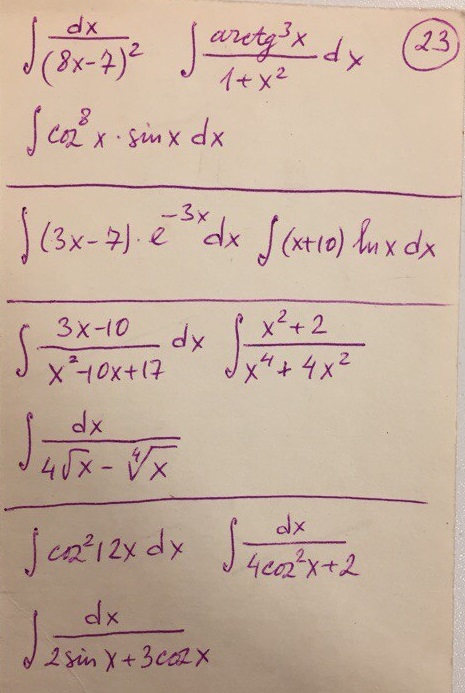 ∫ dx/(8x-7)² ∫ arctg³x/(1+x²) dx 23
∫ cos⁸x · sinx dx
∫ (3x-7) · e^(-3x) dx ∫ (x+10) ln x dx
∫ (3x-10)/(x²-10x+17) dx ∫ (x²+2)/(x⁴+4x²)
∫ dx/(4√x - ∜x)
∫ cos²12x dx ∫ dx/(4cos²x+2)
∫ dx/(2sinx+3cosx)